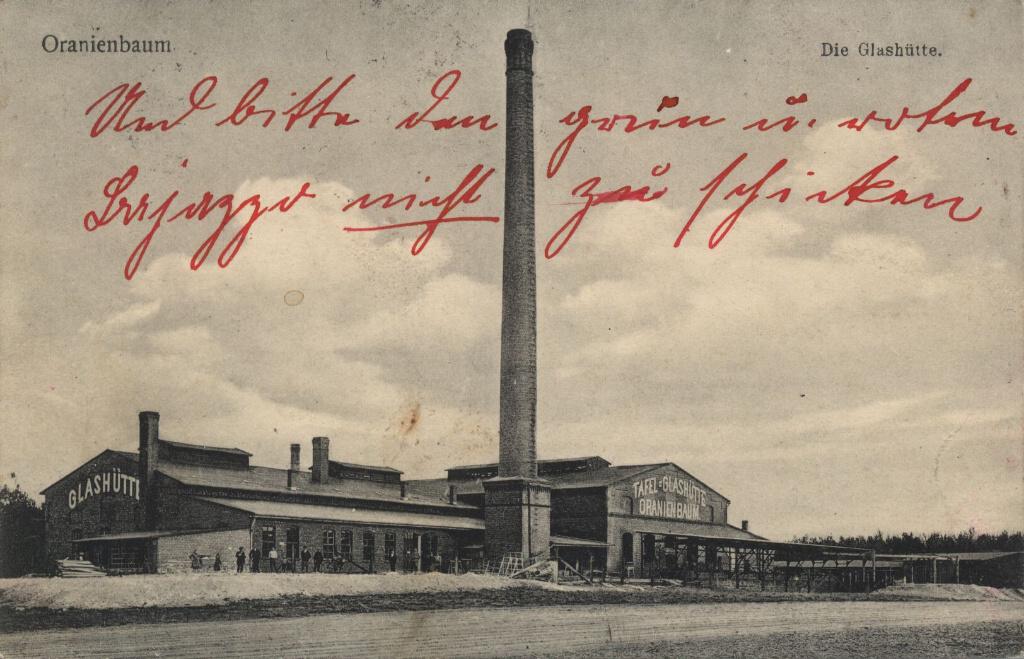 Oranienbaum
Die Glashütte.
Und bitte den grün u. roten
Bajazzo nicht zu schicken
GLASHÜTTE
TAFEL-GLASHÜTTE
ORANIENBAUM